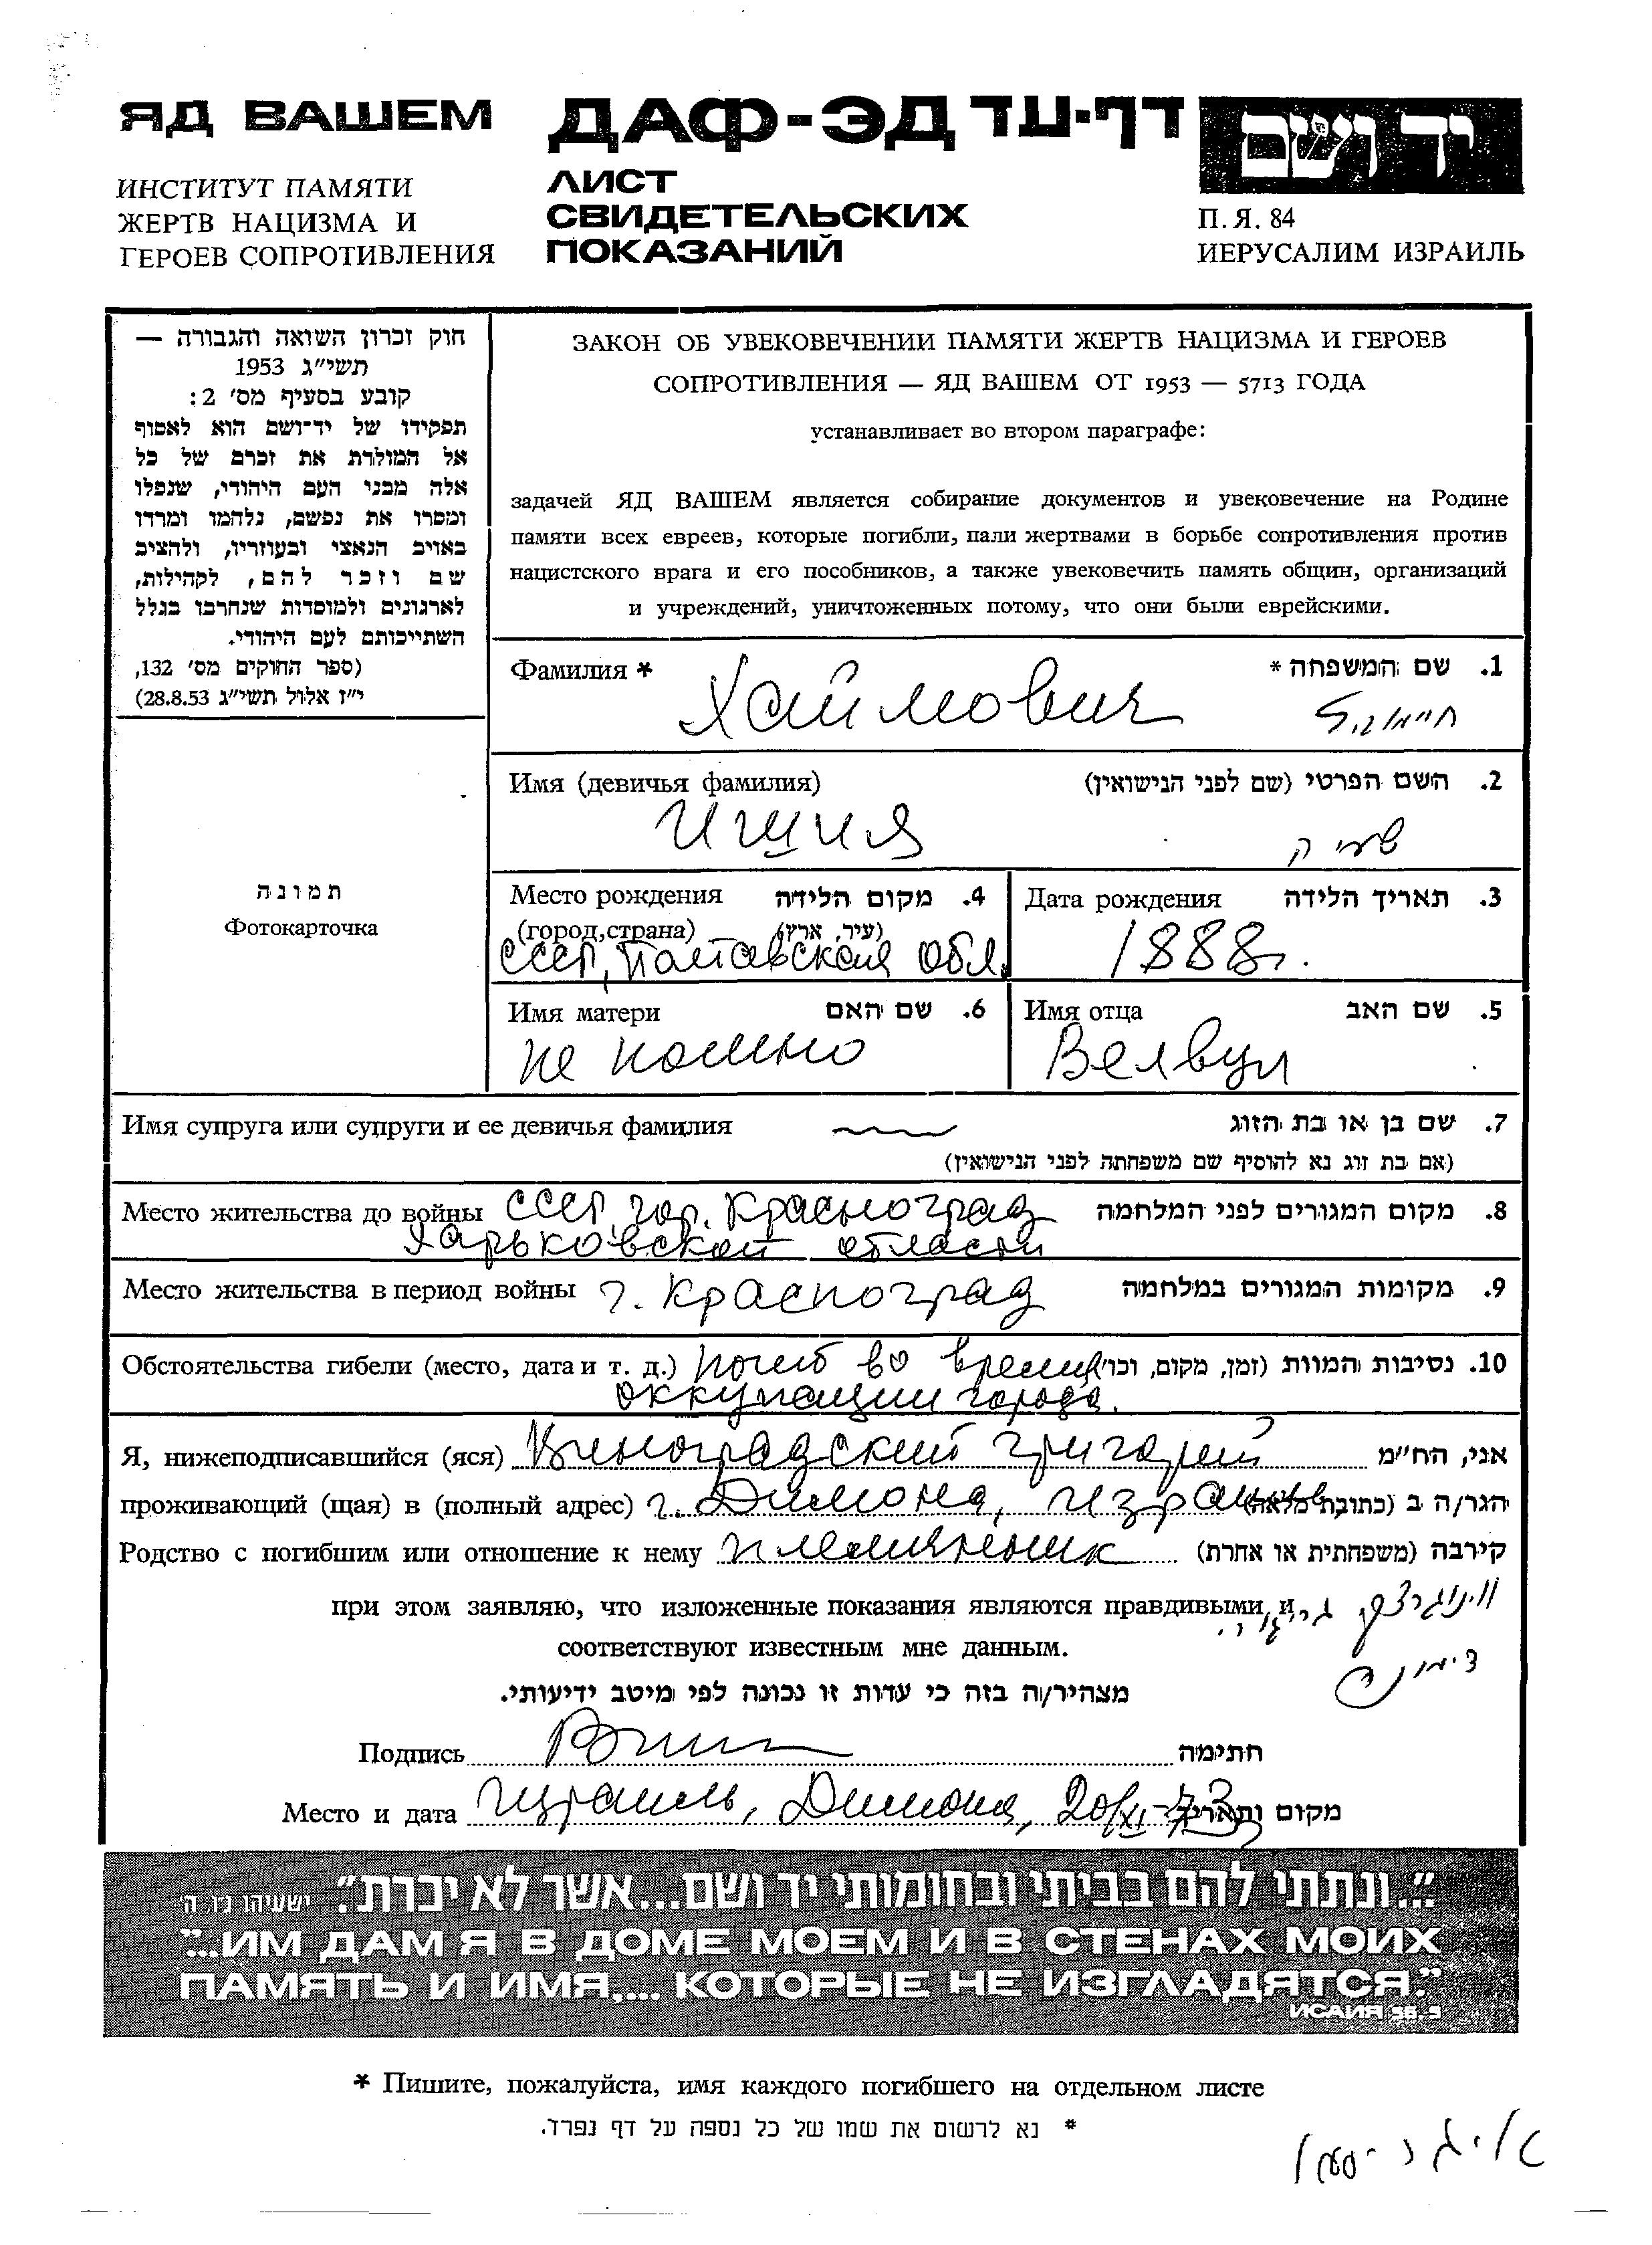 ЯД ВАШЕМ ДАФ-ЭД דף-עד יד ושם
ИНСТИТУТ ПАМЯТИ
ЖЕРТВ НАЦИЗМА И
ГЕРОЕВ СОПРОТИВЛЕНИЯ
ЛИСТ
СВИДЕТЕЛЬСКИХ
ПОКАЗАНИЙ
П. Я. 84
ИЕРУСАЛИМ ИЗРАИЛЬ
חוק זכרון השואה והגבורה —
תשי״ג 1953
קובע בסעיף מס׳ 2:
תפקידו של יד־ושם הוא לאסוף
אל המולדת את זכרם של כל
אלה מבני העם היהודי, שנפלו
ומסרו את נפשם, נלחמו ומרדו
באויב הנאצי ובעוזריו, ולהציב
שם וזכר להם, לקהילות,
לארגונים ולמוסדות שנחרבו בגלל
השתייכותם לעם היהודי.
(ספר החוקים מס׳ 132,
י״ז אלול תשי״ג 28.8.53)
ЗАКОН ОБ УВЕКОВЕЧЕНИИ ПАМЯТИ ЖЕРТВ НАЦИЗМА И ГЕРОЕВ
СОПРОТИВЛЕНИЯ — ЯД ВАШЕМ ОТ 1953 — 5713 ГОДА
устанавливает во втором параграфе:
задачей ЯД ВАШЕМ является собирание документов и увековечение на Родине
памяти всех евреев, которые погибли, пали жертвами в борьбе сопротивления против
нацистского врага и его пособников, а также увековечить память общин, организаций
и учреждений, уничтоженных потому, что они были еврейскими.
Фамилия * 1. שם המשפחה *
Хаймович חיימוביץ
Имя (девичья фамилия) 2. השם הפרטי (שם לפני הנישואין)
Ишия
תמונה
Фотокарточка
Место рождения 4. מקום הלידה
(город, страна) (עיר, ארץ)
СССР, Полтавская обл.
Дата рождения 3. תאריך הלידה
1888г.
Имя матери 6. שם האם
не помню
Имя отца 5. שם האב
Велвул
Имя супруга или супруги и ее девичья фамилия 7. שם בן או בת הזוג
(אם בת זוג נא להוסיף שם משפחתה לפני הנישואין)
Место жительства до войны СССР, гор. Красноград 8. מקום המגורים לפני המלחמה
Харьковской области
Место жительства в период войны г. Красноград 9. מקומות המגורים במלחמה
Обстоятельства гибели (место, дата и т. д.) погиб во время 10. נסיבות המוות (זמן, מקום, וכו׳)
оккупации города.
Я, нижеподписавшийся (яся) Виноградский Григорий אני, הח״מ
проживающий (щая) в (полный адрес) г. Димона, Израиль הגר/ה ב (כתובת מלאה)
Родство с погибшим или отношение к нему племянник קירבה (משפחתית או אחרת)
при этом заявляю, что изложенные показания являются правдивыми и
соответствуют известным мне данным.
דימונה
מצהיר/ה בזה כי עדות זו נכונה לפי מיטב ידיעותי.
Подпись חתימה
Место и дата Израиль, Димона, 20/XI-73 מקום ותאריך
„...ונתתי להם בביתי ובחומותי יד ושם...אשר לא יכרת״. ישעיהו נ״ו, ה׳
„...ИМ ДАМ Я В ДОМЕ МОЕМ И В СТЕНАХ МОИХ
ПАМЯТЬ И ИМЯ.... КОТОРЫЕ НЕ ИЗГЛАДЯТСЯ.”
ИСАИЯ 56.5
* Пишите, пожалуйста, имя каждого погибшего на отдельном листе
* נא לרשום את שמו של כל נספה על דף נפרד.